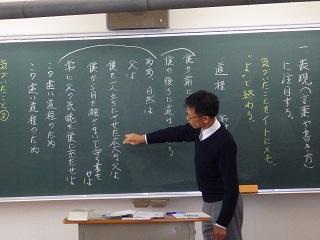 一 表現(言葉や書き方)
に注目する。
気づいたことをノートにメモ。
“よ”で終わる。
道程
僕の前に
僕の後ろに道は
ああ、自然よ
父よ
僕を一人立ちにさせた広大な父よ
僕から目を離さないで守る事をせよ
常に父の気魄を僕に充たせよ
この遠い道程のため
この遠い道程のため
気づいたこと②